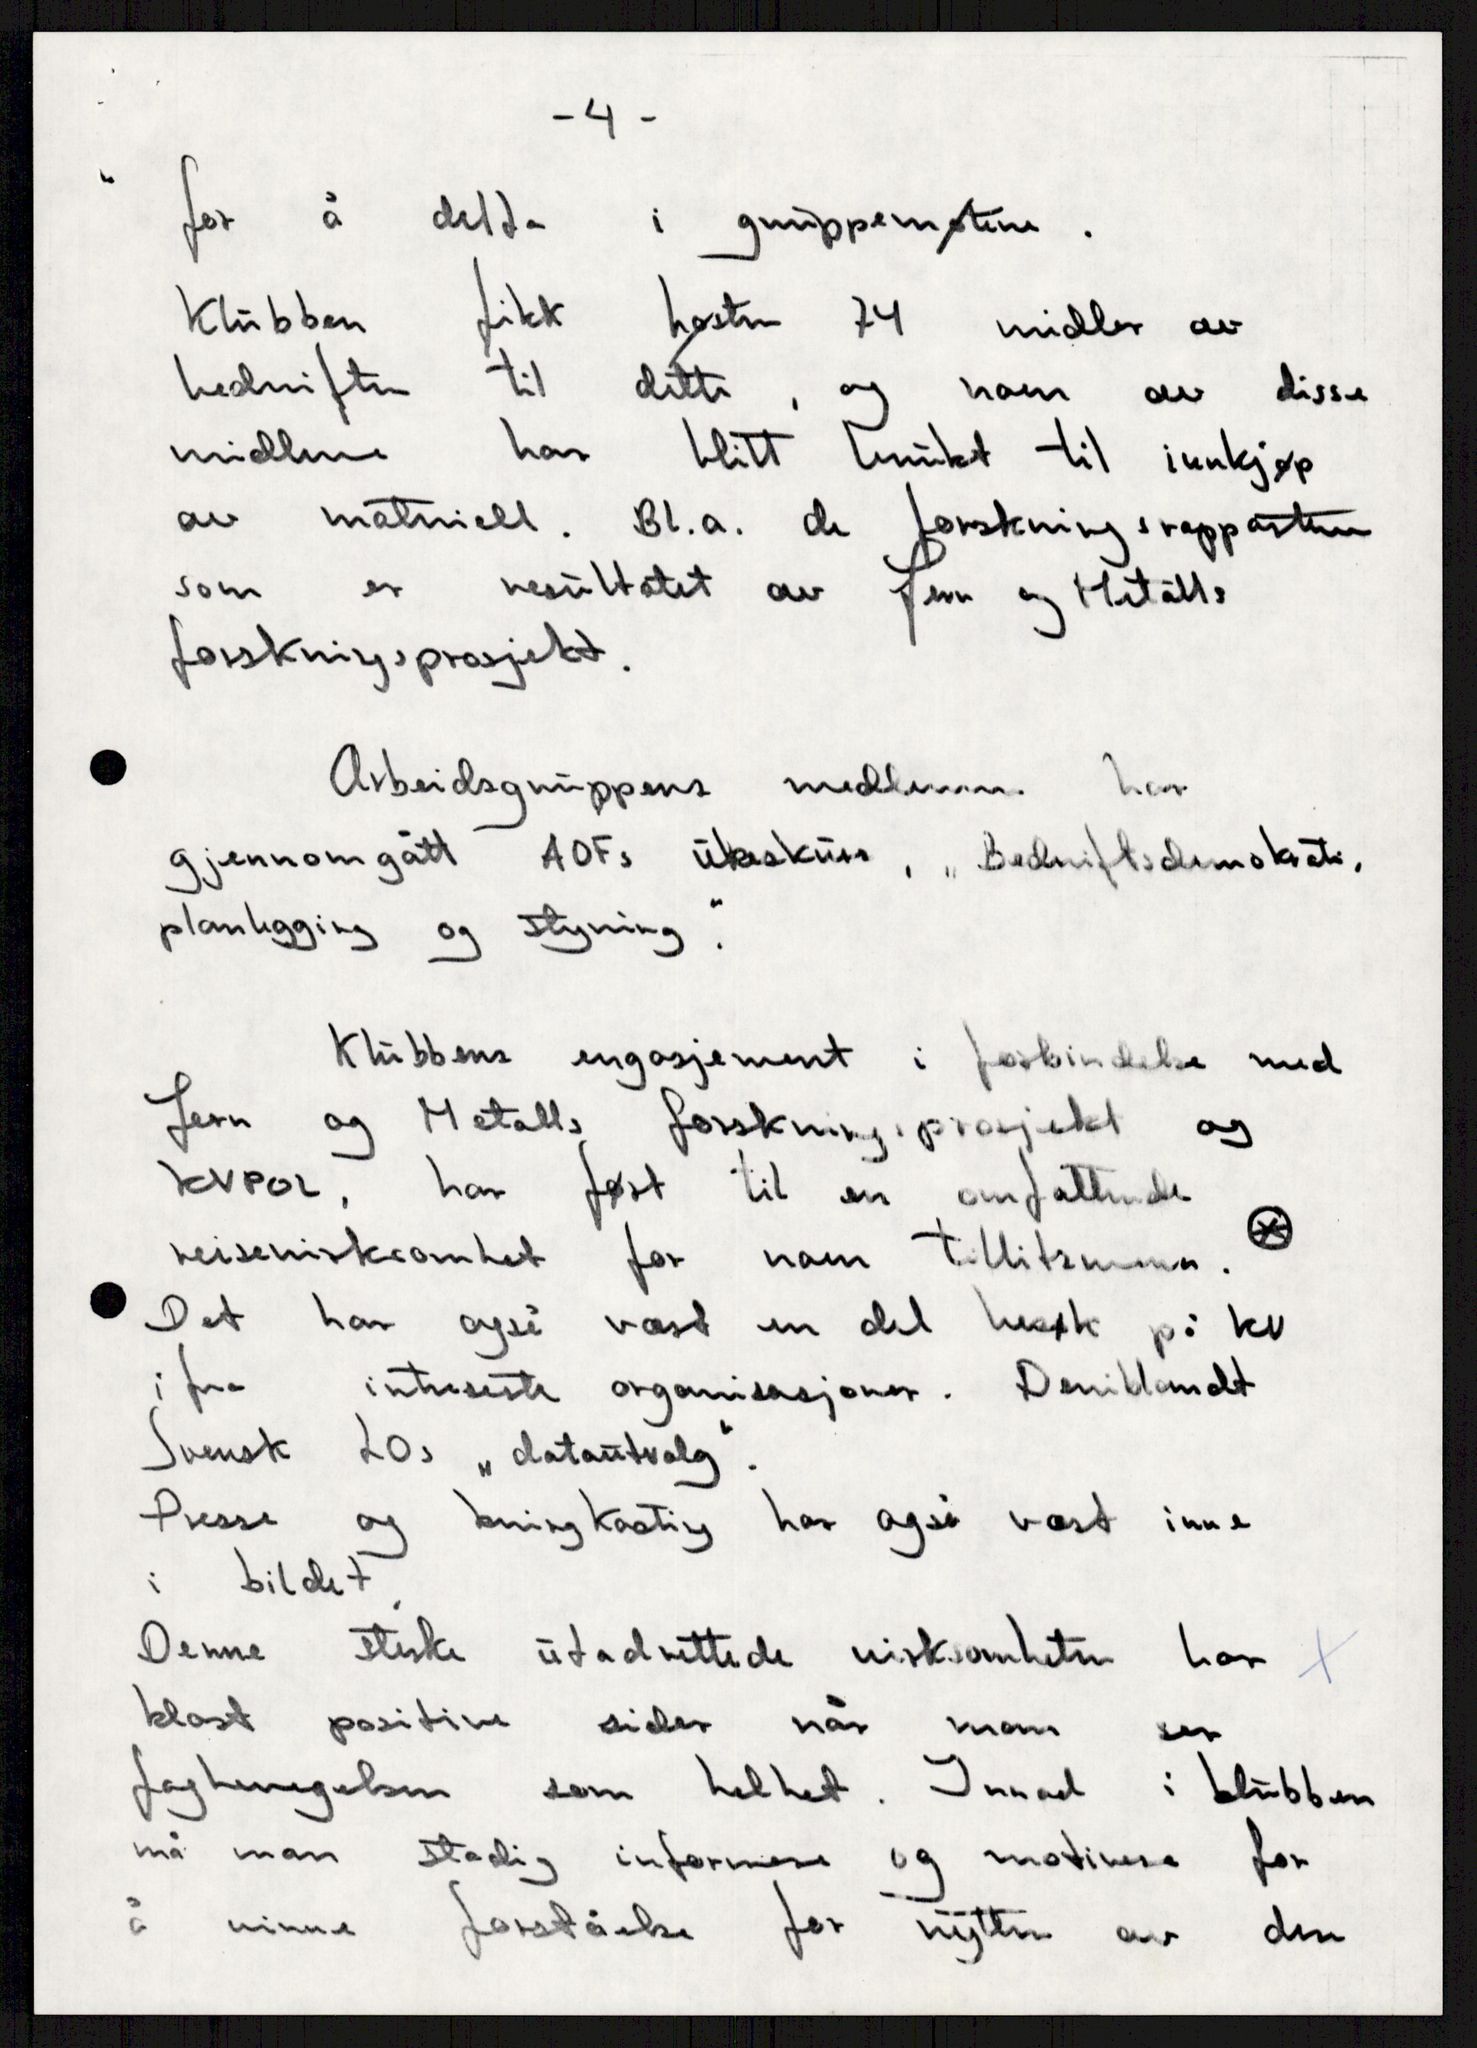 - 4 -
for å delta i gruppemøtene.
Klubben fikk høsten 74 midler av
bedriften til dette, og noen av disse
midlene har blitt brukt til innkjøp
av materiell. Bl.a. de forskningsrapportene
som er resultatet av Jern og Metalls
forskningsprosjekt.
Arbeidsgruppens medlemmer har
gjennomgått AOFs ukeskurs, „Bedriftsdemokrati,
planlegging og styring".
Klubbens engasjement i forbindelse med
Jern og Metalls forskningsprosjekt og
KVPOL, har ført til en omfattende
reisevirksomhet for noen tillitsmenn. ⊛
Det har også vært en del besøk på KV
ifra interesserte organisasjoner. Deriblandt
Svensk LOs „datautvalg".
Presse og kringkasting har også vært inne
i bildet.
Denne sterke utadrettede virksomheten har x
klart positive sider når man ser
fagbevegelsen som helhet. Innad i klubben
må man stadig informere og motivere for
å vinne forståelse for nytten av den